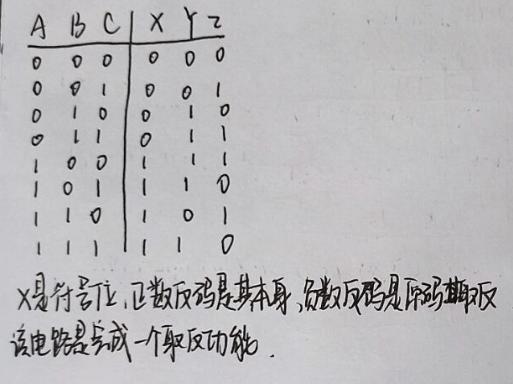 A B C X Y Z
0 0 0 0 0 0
0 0 1 0 0 1
0 1 0 0 1 0
0 1 1 0 1 1
1 0 0 1 1 1
1 0 1 1 1 0
1 1 0 1 0 1
1 1 1 1 1 0
X是符号位,正数反码是其本身,负数反码是原码取反
该电路是完成一个取反功能.